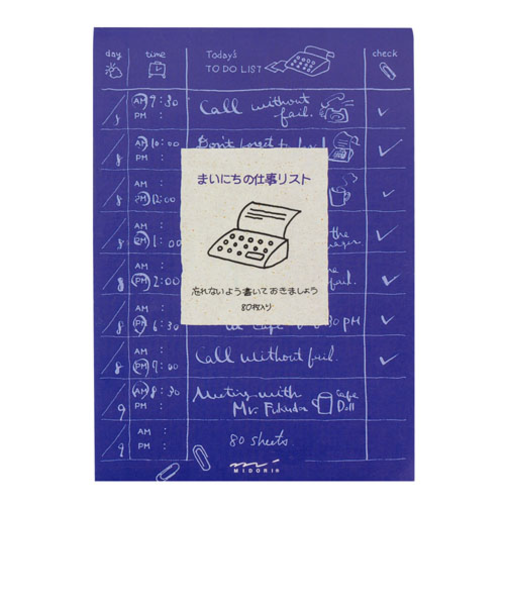 day time Today's check
TO DO LIST
/8 AM 9:30 Call without fail.
PM :
/8 AM 10:00 Don't forget to
PM :
/8 AM :
PM 12:00
/8 AM : the
PM 1:00
/8 AM :
PM 2:00 fail.
/8 AM :
PM 6:30 Cafe 30 PM
/8 AM : Call without fail.
PM 9:00
/9 AM 8:30 Meeting with Cafe
PM : Mr. Fukuda Doll
/9 AM :
PM : 80 sheets.
まいにちの仕事リスト
忘れないよう書いておきましょう
80枚入り
MIDORI